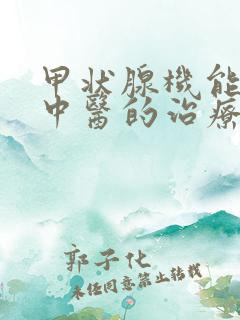 甲状腺機能
中醫的治療
郭子化
未经同意禁止转载